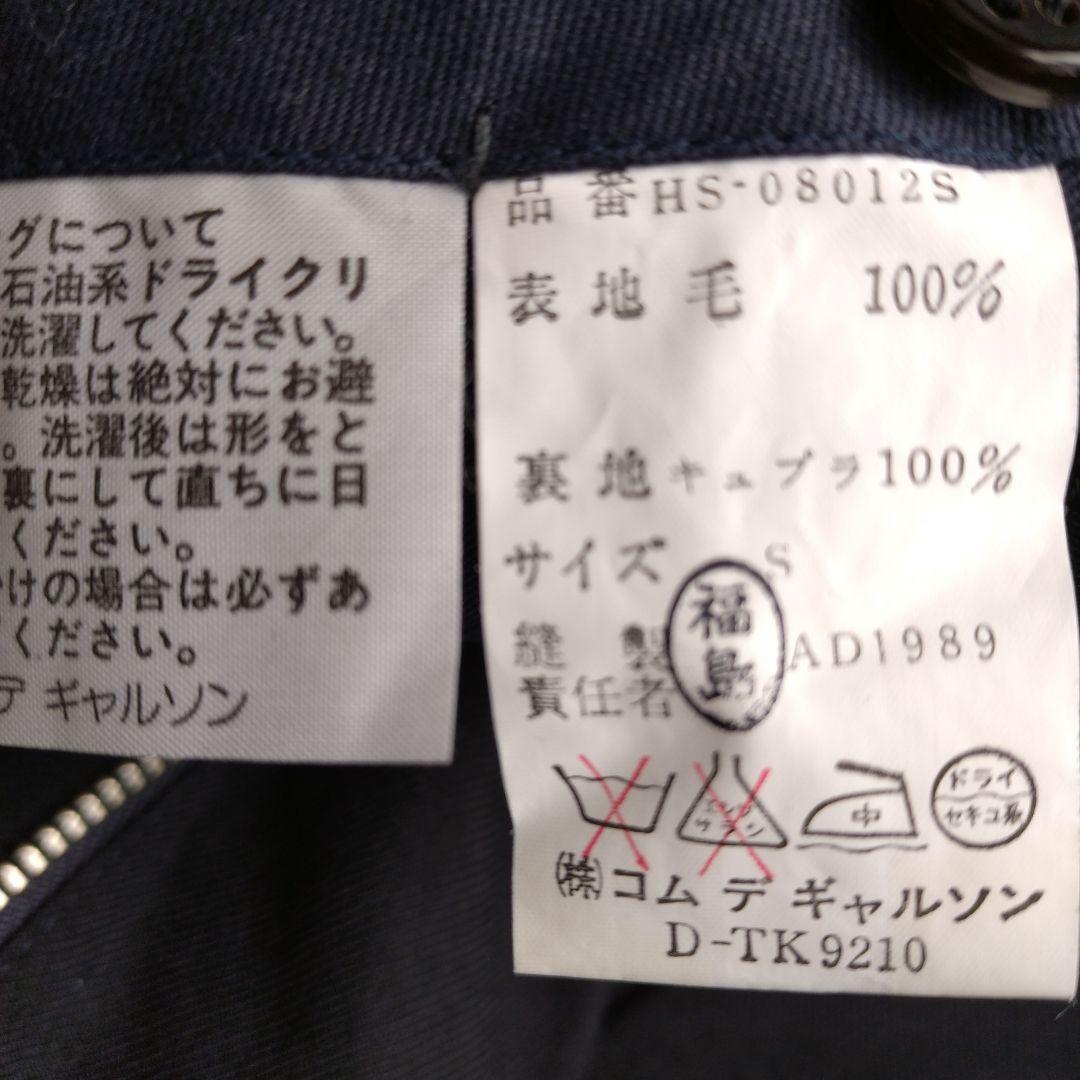 グについて
石油系ドライクリ
洗濯してください。
乾燥は絶対にお避
。洗濯後は形をと
裏にして直ちに日
ください。
けの場合は必ずあ
ください。
デ ギャルソン
品 番 HS-08012S
表 地 毛 100%
裏 地 キュプラ 100%
サイズ S
縫 製 福島 AD1989
責任者
中
ドライ
セキユ系
㈱コム デ ギャルソン
D-TK9210